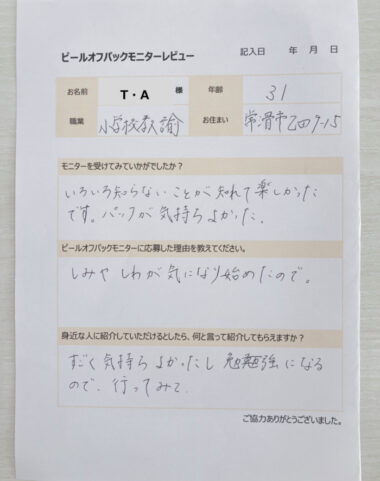 ピールオフパックモニターレビュー 記入日 年 月 日
お名前 T・A 様 年齢 31
職業 小学校教諭 お住まい 常滑市
モニターを受けてみていかがでしたか？
いろいろ知らないことが知れて楽しかった
です。パックが気持ちよかった.
ピールオフパックモニターに応募した理由を教えてください。
しみやしわが気になり始めたので。
身近な人に紹介していただけるとしたら、何と言って紹介してもらえますか？
すごく気持ちよかったし 勉強になる
ので、行ってみて.
ご協力ありがとうございました。